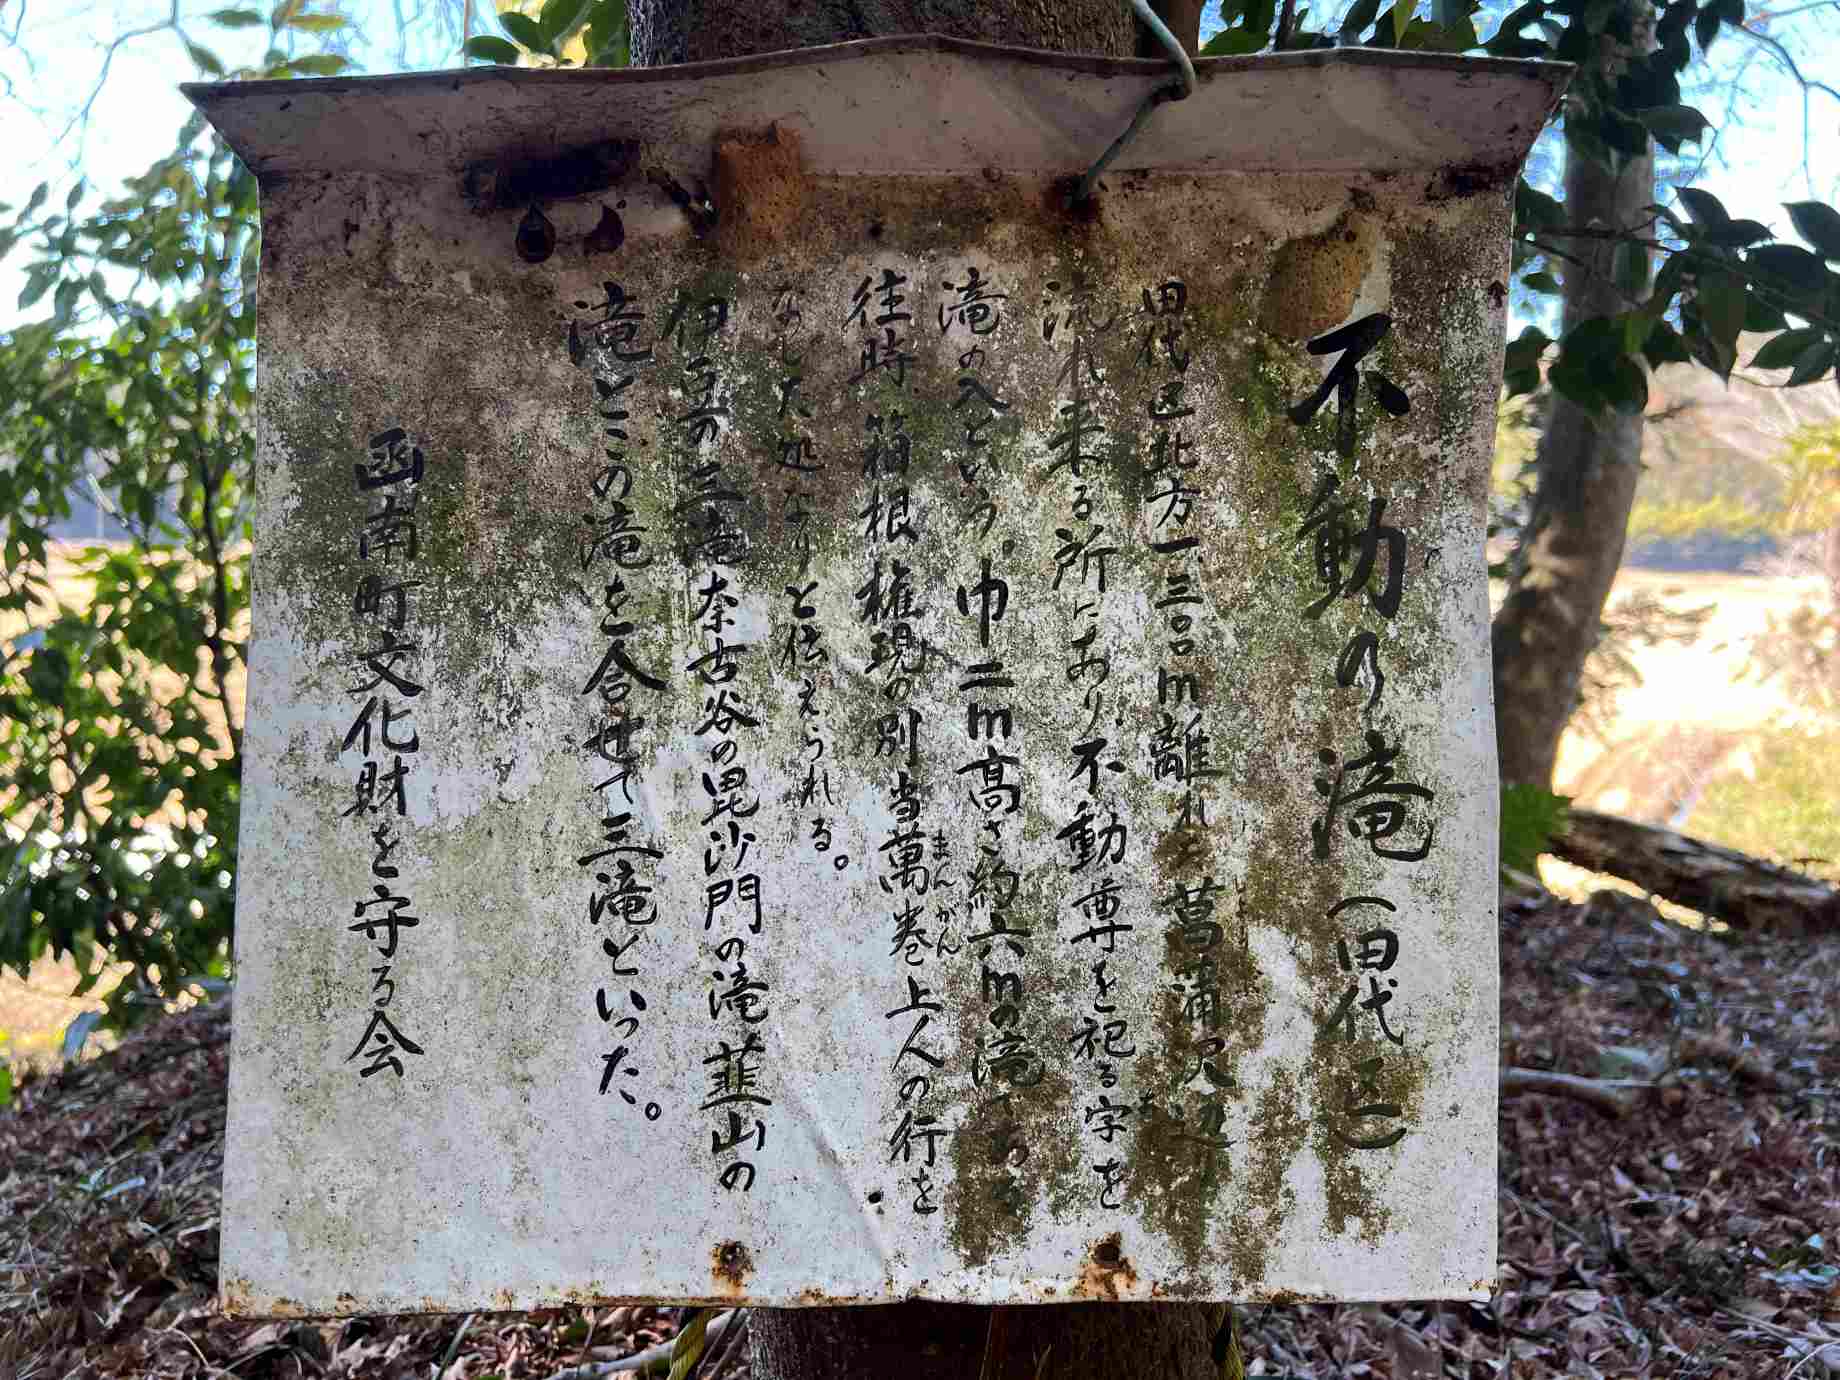 不動の滝（田代区）
田代区北方一、三〇〇m離れた菖蒲沢辺
流れ来る所にあり、不動尊を祀る字を
滝の入という、巾二m高さ約六mの滝である
往時、箱根権現の別当萬巻上人の行を
まんがん
なした処なりと伝えられる。
伊豆の三滝奈古谷の毘沙門の滝韮山の
滝とこの滝を合せて三滝といった。
函南町文化財を守る会